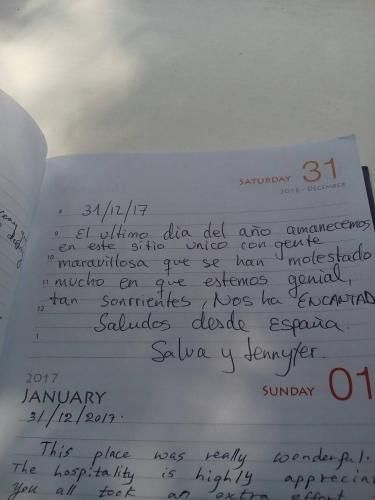 SATURDAY 31
2016 • DECEMBER
8 31/12/17
9 El ultimo dia del año amanecemos
en este sitio unico con gente
10 maravillosa que se han molestado
11 mucho en que estemos genial,
12 tan sonrrientes, Nos ha ENCANTAD
Saludos desde España.
1 Salva y Jennyfer.
2017
JANUARY
SUNDAY 01
31/12/2017.
This place was really wonderful.
The hospitality is highly apprecia
You all took an extra effort